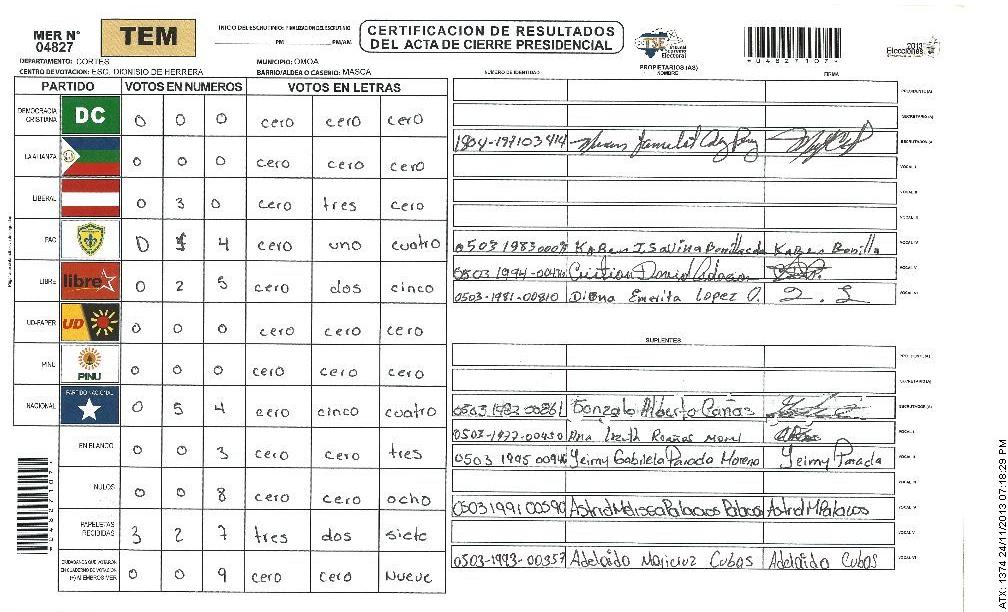 MER N° 04827
TEM
INICIO DEL ESCRUTINIO: FINALIZACION DEL ESCRUTINIO
PM PM/AM
CERTIFICACION DE RESULTADOS
DEL ACTA DE CIERRE PRESIDENCIAL
TSE Tribunal Supremo Electoral
2013 Elecciones
*04827107*
DEPARTAMENTO: CORTES MUNICIPIO: OMOA
CENTRO DE VOTACION: ESC. DIONISIO DE HERRERA BARRIO/ALDEA O CASERIO: MASCA
NUMERO DE IDENTIDAD PROPIETARIOS (AS) NOMBRE FIRMA
PARTIDO VOTOS EN NUMEROS VOTOS EN LETRAS
DEMOCRACIA CRISTIANA DC 0 0 0 cero cero cero
LA ALIANZA 0 0 0 cero cero cero
LIBERAL 0 3 0 cero tres cero
PAC 0 1 4 cero uno cuatro
LIBRE libre 0 2 5 cero dos cinco
UD-FAPER UD 0 0 0 cero cero cero
PINU PINU 0 0 0 cero cero cero
NACIONAL PARTIDO NACIONAL 0 5 4 cero cinco cuatro
EN BLANCO 0 0 3 cero cero tres
NULOS 0 0 8 cero cero ocho
PAPELETAS RECIBIDAS 3 2 7 tres dos siete
CIUDADANOS QUE VOTARON EN CUADERNO DE VOTACION (+) MIEMBROS MER 0 0 9 cero cero nueve
PRESIDENTE (A)
SECRETARIO (A)
1804-197103414 ESCRUTADOR (A)
VOCAL I
VOCAL II
VOCAL III
0503 1983 Bonilla VOCAL IV
0503 1994-00436 Cristian David VOCAL V
0503-1981-00810 Diana Emerita Lopez O. VOCAL VI
SUPLENTES
PRESIDENTE (A)
SECRETARIO (A)
0503 1982 00861 Gonzalo Alberto Cañas ESCRUTADOR (A)
0503-1977-00450 Ana VOCAL I
0503 1995 00946 Yeimy Gabriela Parada Moreno Yeimy Parada VOCAL II
VOCAL III
0503 1991 00590 Astrid Melissa Palacios Palacios Astrid M Palacios VOCAL IV
VOCAL V
0503-1993-00357 Adelaido Cubas Adelaido Cubas VOCAL VI
*04827107*
ATX: 1374 24/11/2013 07:18:29 PM